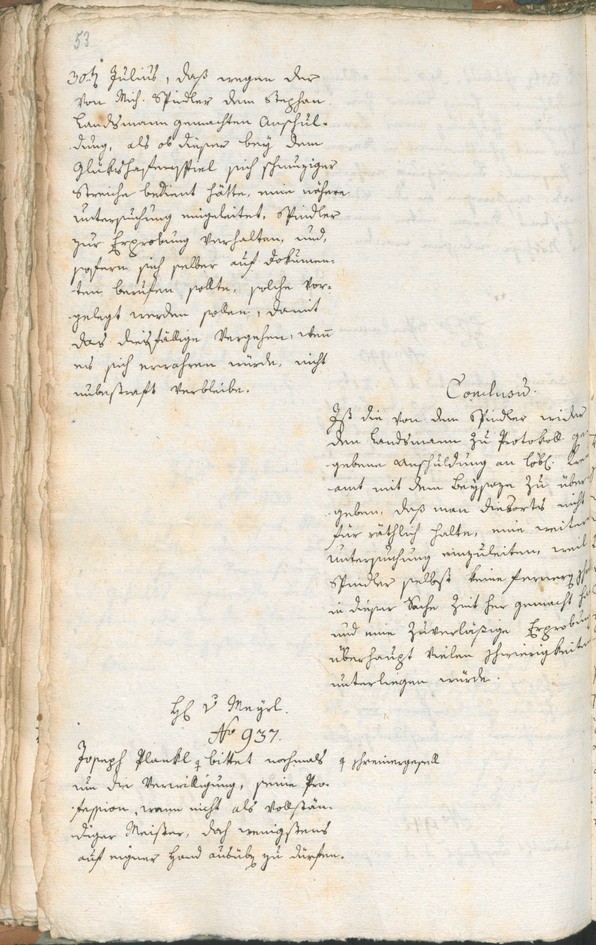 53
30ten Julius, daß wegen der
von Mich. Spindler dem Stephan
Landsmann gemachten Anschul-
dung, als ob dieser bey dem
Glükshafenspiel sich schmuziger
Streiche bedient hätte, eine nähere
untersuchung eingeleitet, Spindler
zur Erprobung verhalten, und,
sofern sich selber auf Dokumen-
ten berufen sollte, solche vor-
gelegt werden sollen, damit
das diesfällige Vergehen, wenn
es sich erwahren würde, nicht
unbestraft verbleibe.
Conclusum.
Ist die von dem Spindler wider
den Landsmann zu Protokoll ge-
gebene Anschuldung an löbl.
amt mit dem Beysaze zu über
geben, daß man diesorts nicht
für räthlich halte, eine weitere
untersuchung einzuleiten, weil
Spindler selbst keine
in dieser Sache zeit her gemacht
und eine zuverläßige Erprobung
überhaupt vielen schwierigkeiten
unterliegen würde.
H. v Mayrl.
No 937.
Joseph Plankl bittet nochmals schreinergesell
um die Verwilligung, seine Pro-
fession, wenn nicht als vollstän-
diger Meister, doch wenigstens
auf eigner Hand ausüben zu dürfen.